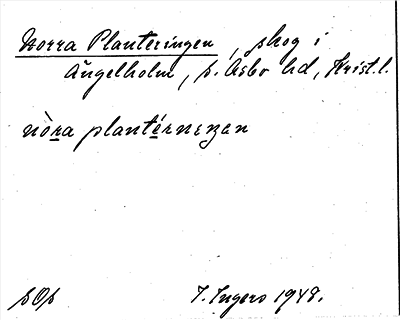 Norra Planteringen, skog i
Ängelholm, s. Åsbo hd, Krist. l.
nòra plantérneŋen
sOs
J. Ingers 1948.